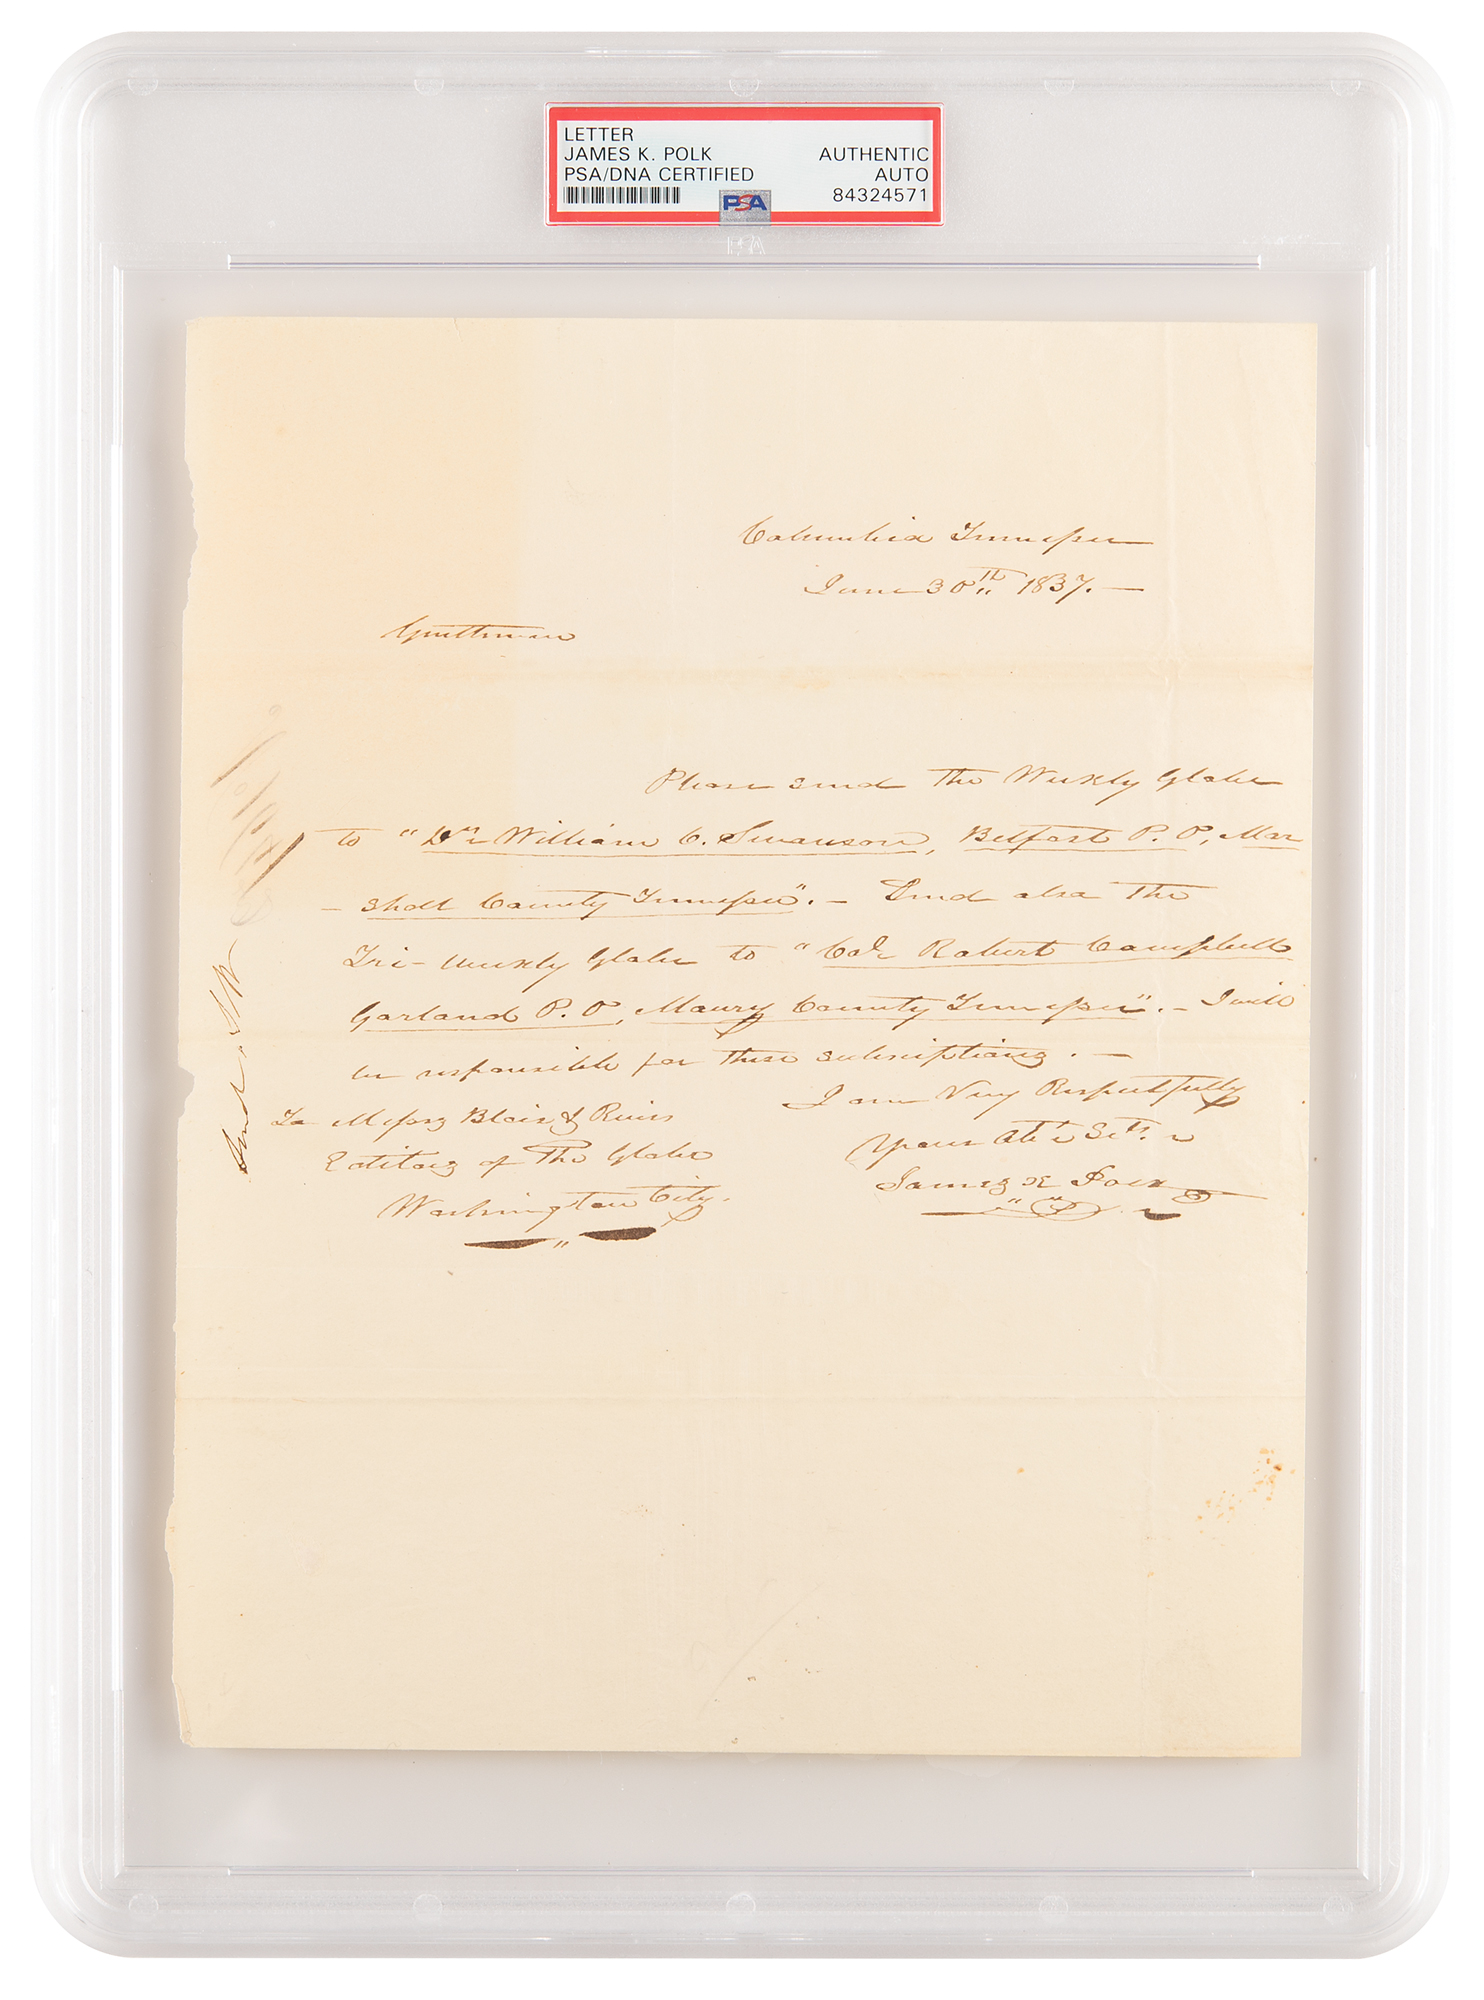 LETTER
JAMES K. POLK AUTHENTIC
PSA/DNA CERTIFIED AUTO
PSA 84324571
PSA
Columbia Tennessee
June 30th 1837. —
Gentlemen
Please send the Weekly Globe
to "Dr. William C. Swanson, Belfast P. O, Mar
- shall County Tennessee". — Send also the
Tri-weekly Globe to "Col. Robert Campbell
Garland P. O, Maury County Tennessee". — I will
be responsible for these subscriptions. —
I am Very Respectfully
Your Obt. Svt.
James K Polk
To Messrs Blair & Rives
Editors of The Globe
Washington City.